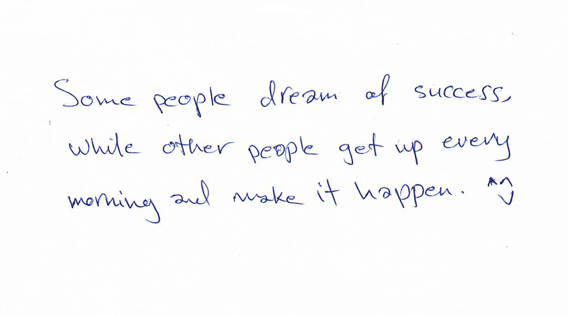 Some people dream of success,
while other people get up every
morning and make it happen. ^^